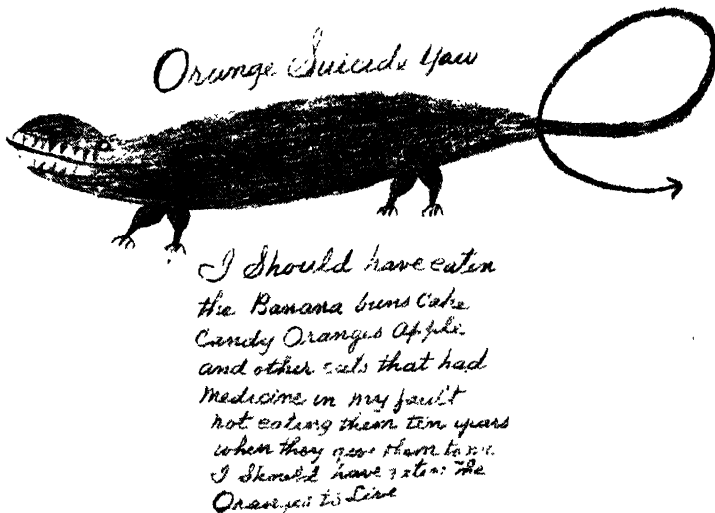 Orange Suicide Yaw
I Should have eaten
the Banana buns Cake
Candy Oranges Apple
and other eats that had
medicine in my fault
not eating them ten years
when they gave them to me
I Should have eten The
Oranges to Live